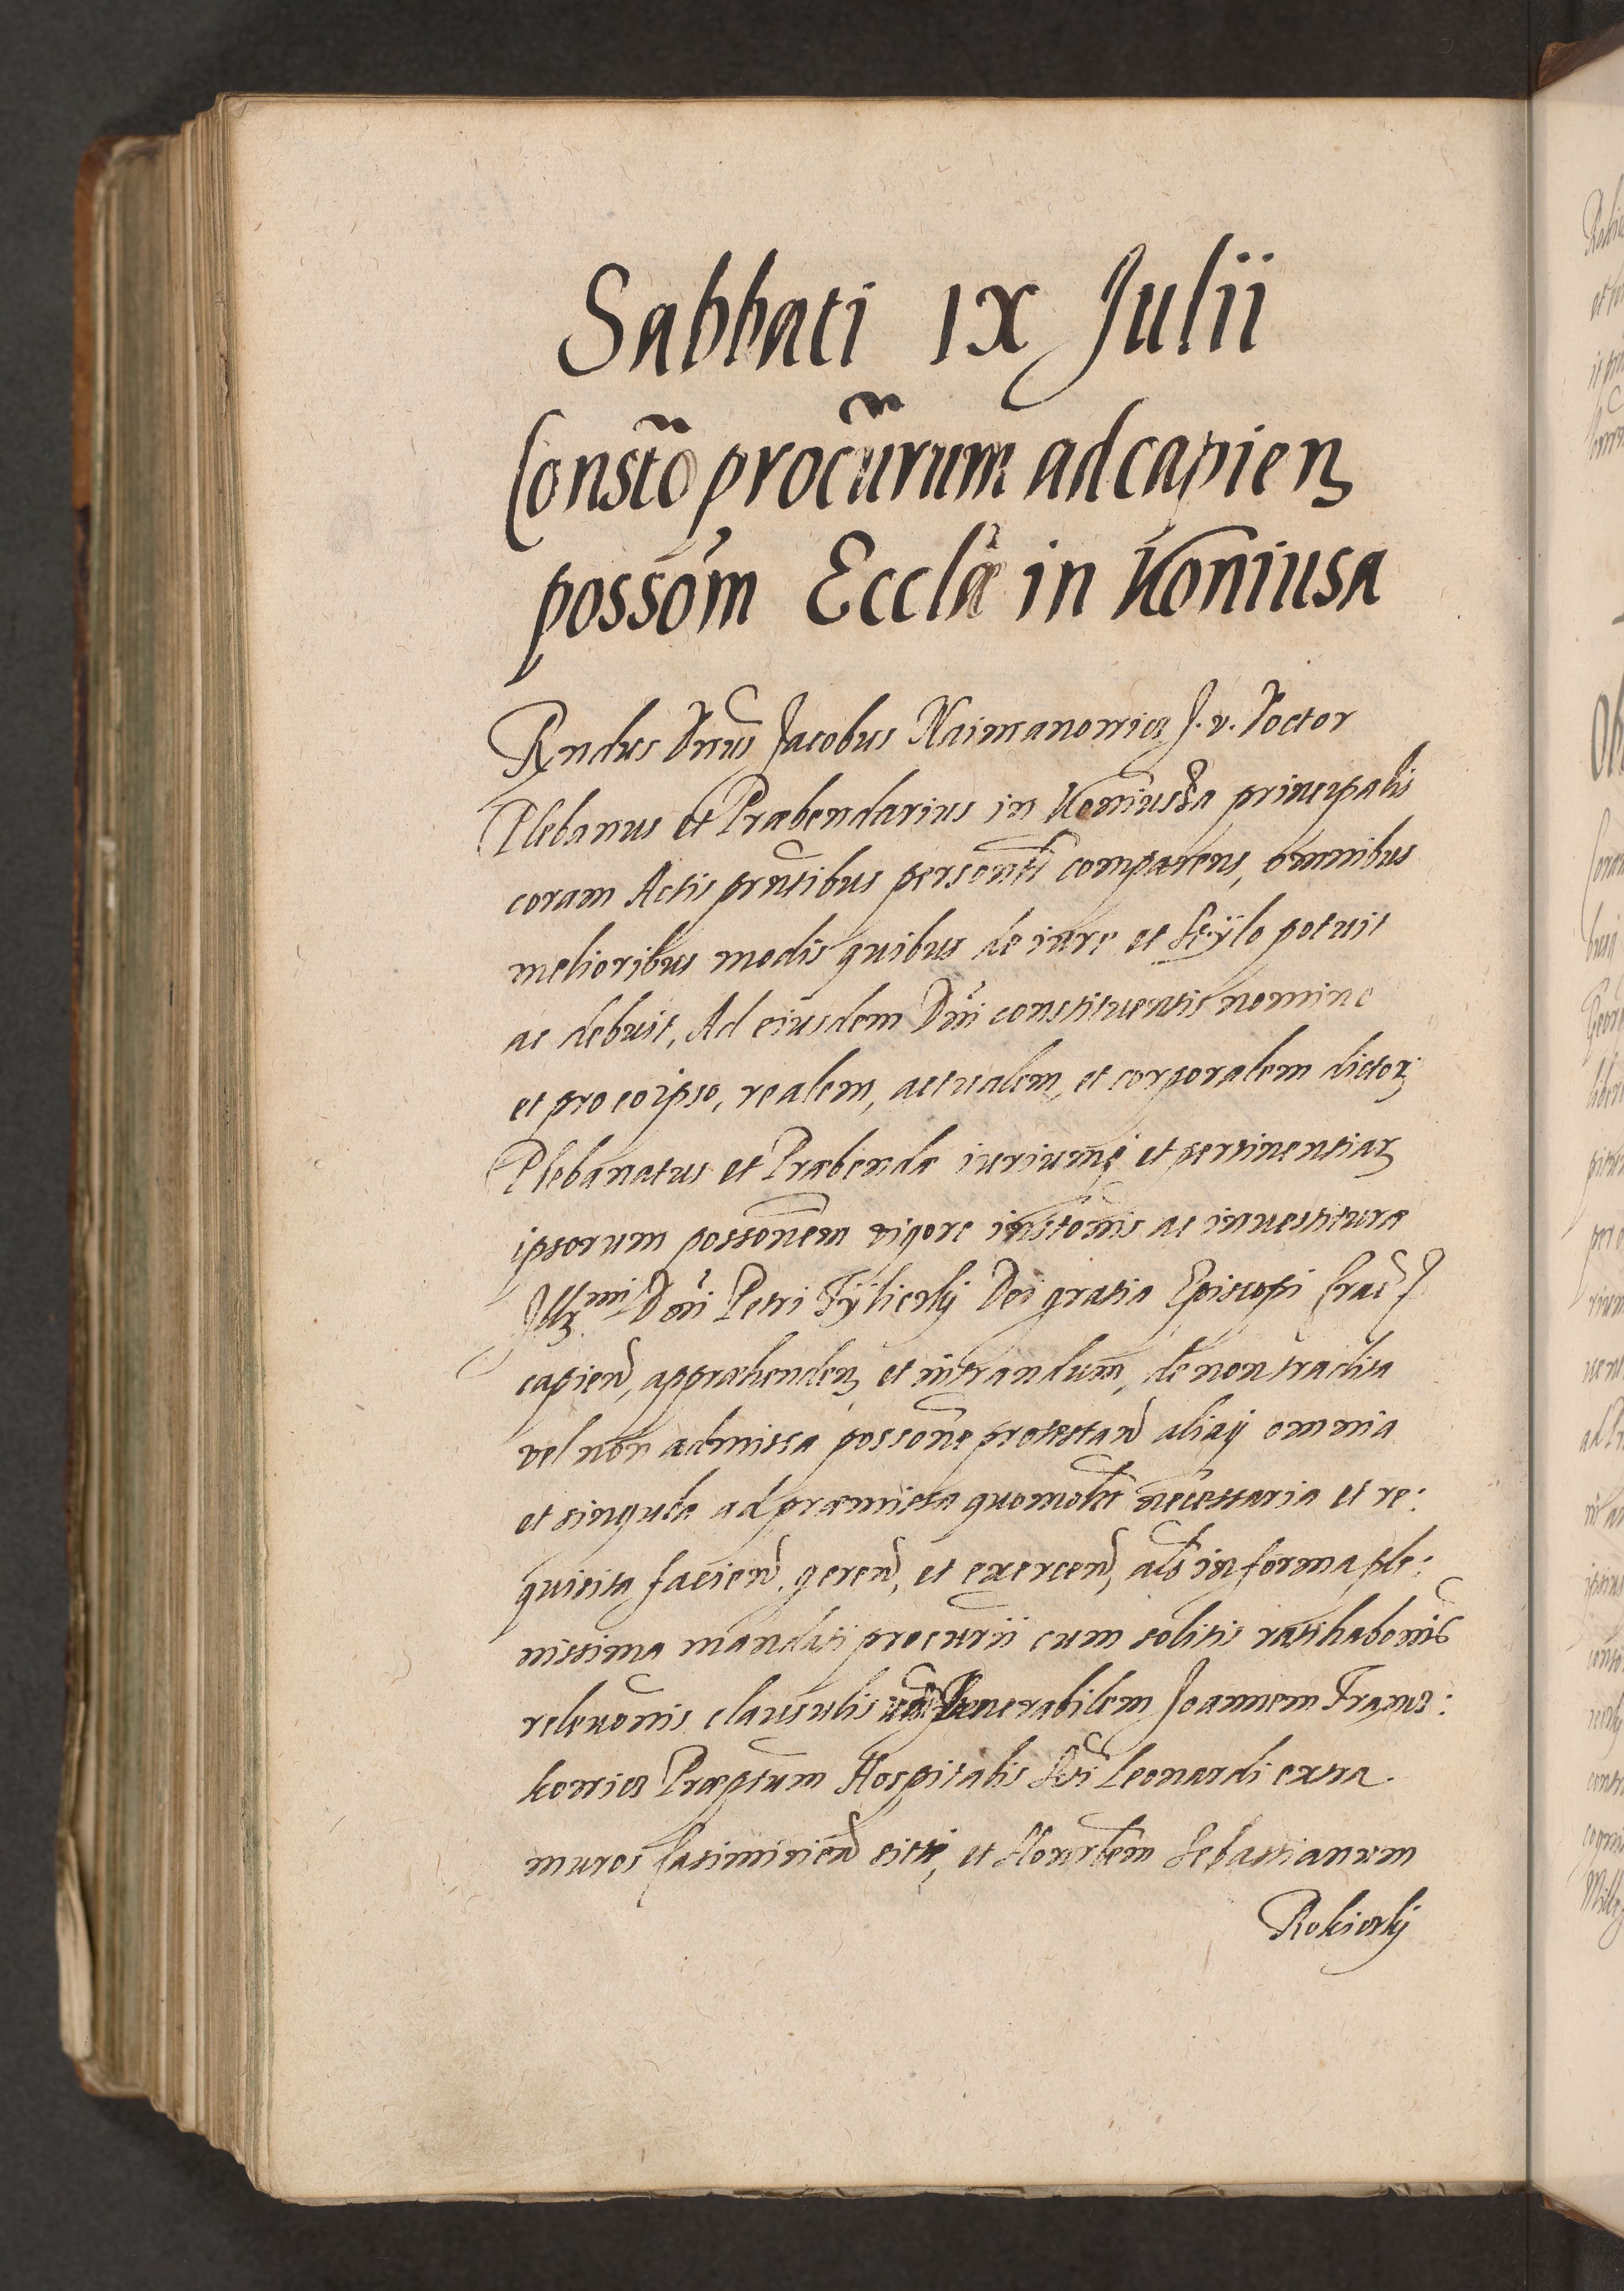 Sabbati IX Julii
Constõ procũrum ad capienꝫ
possom̃ Ecclæ in Koniusa
Rndus Dnus Jacobus Naimanowicz J. v. Doctor
Plebanus et Præbendarius in Koniussa principalis
coram Actis pñtibus personlr comparens, omnibus
melioribus modis quibus de iure et stÿlo potuit
ac debuit, Ad eiusdem Dñi constituentis nomine
et pro eoipso, realem, actualem, et corporalem dictorꝫ
Plebanatus et Præbendæ iuriumqꝫ et pertinentiarꝫ
ipsorum possoñem vigore instõnis ac inuestituræ
Illꝫmi Dñi Petri Tÿlicskÿ Dei gratia Episcopi Crac̃
capieñ, appræhendenꝫ et intrandum, de non tradita
vel non admissa possoñe protestañ aliaqꝫ omnia
et singula ad præmissa quomolt necessaria et re:
quisita facieñ, gereñ, et exerceñ, als in forma ple:
nissima mandati procurii cum solitis ratihaboñis
releuoñis clausulis Venerabilem Joannem Franc:
kowicz Præptum Hospitalis Sti Leonardi extra
muros Casimirieñ siti, et Honorblem Sebastianum
Rokickÿ